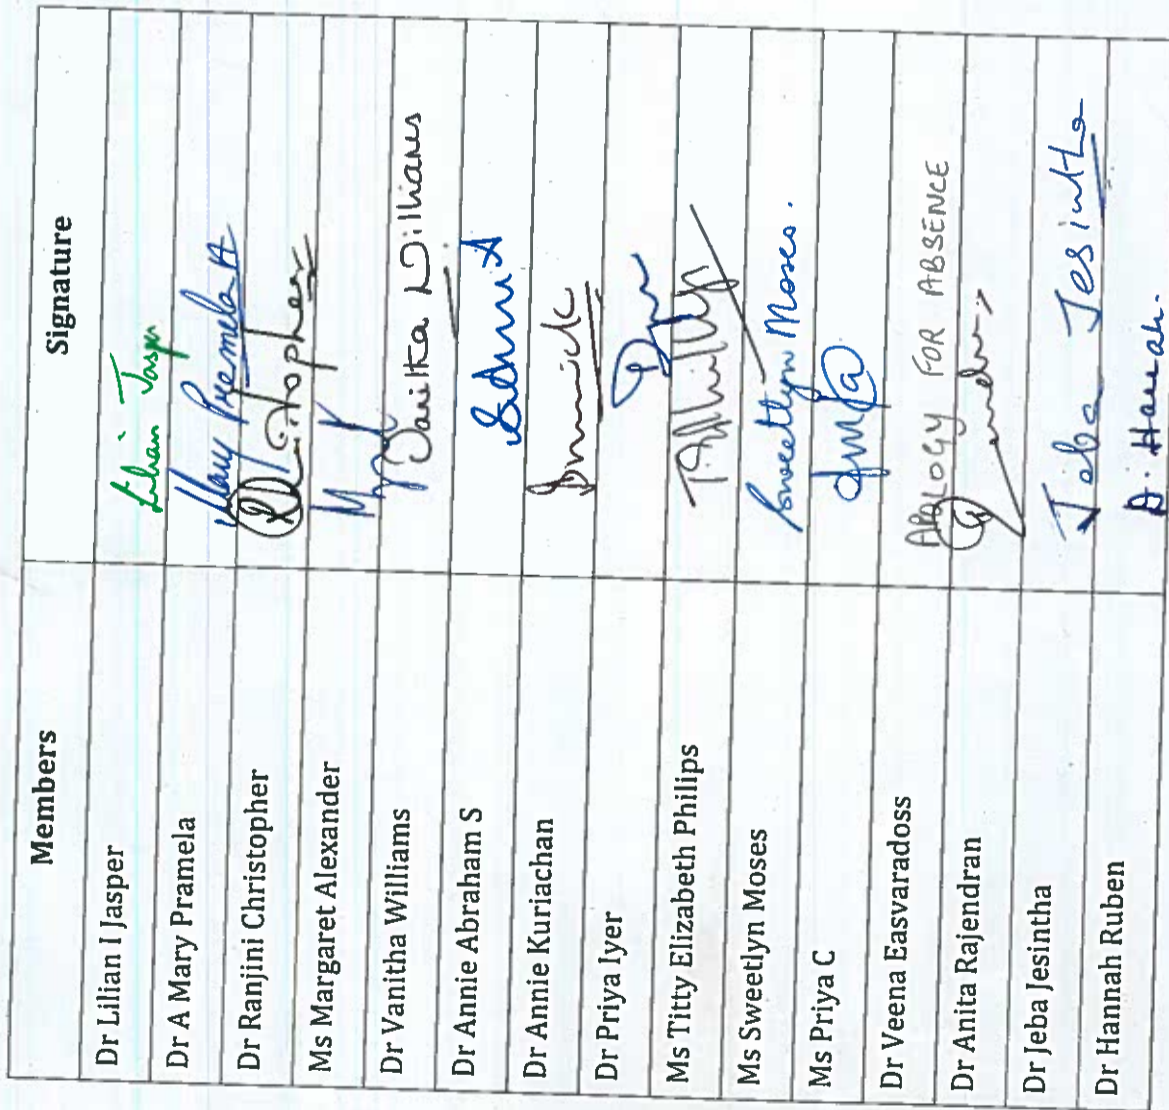 Members Signature
Dr Lillian I Jasper Lilian Jasper
Dr A Mary Pramela Mary Pramela A
Dr Ranjini Christopher
Ms Margaret Alexander
Dr Vanitha Williams Vanitha Williams
Dr Annie Abraham S
Dr Annie Kuriachan
Dr Priya Iyer
Ms Titty Elizabeth Philips
Ms Sweetlyn Moses Sweetlyn Moses.
Ms Priya C
Dr Veena Easvaradoss APOLOGY FOR ABSENCE
Dr Anita Rajendran
Dr Jeba Jesintha Jeba Jesintha
Dr Hannah Ruben